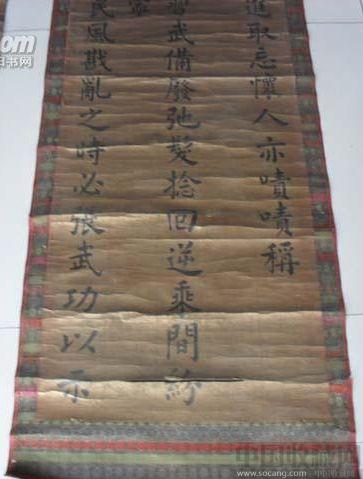 進取忘懷人亦嘖嘖稱
武備廢弛髮捻回逆乘間紛
民風戡亂之時必張武功以示
.com
旧书网
中国收藏网
www.socang.com